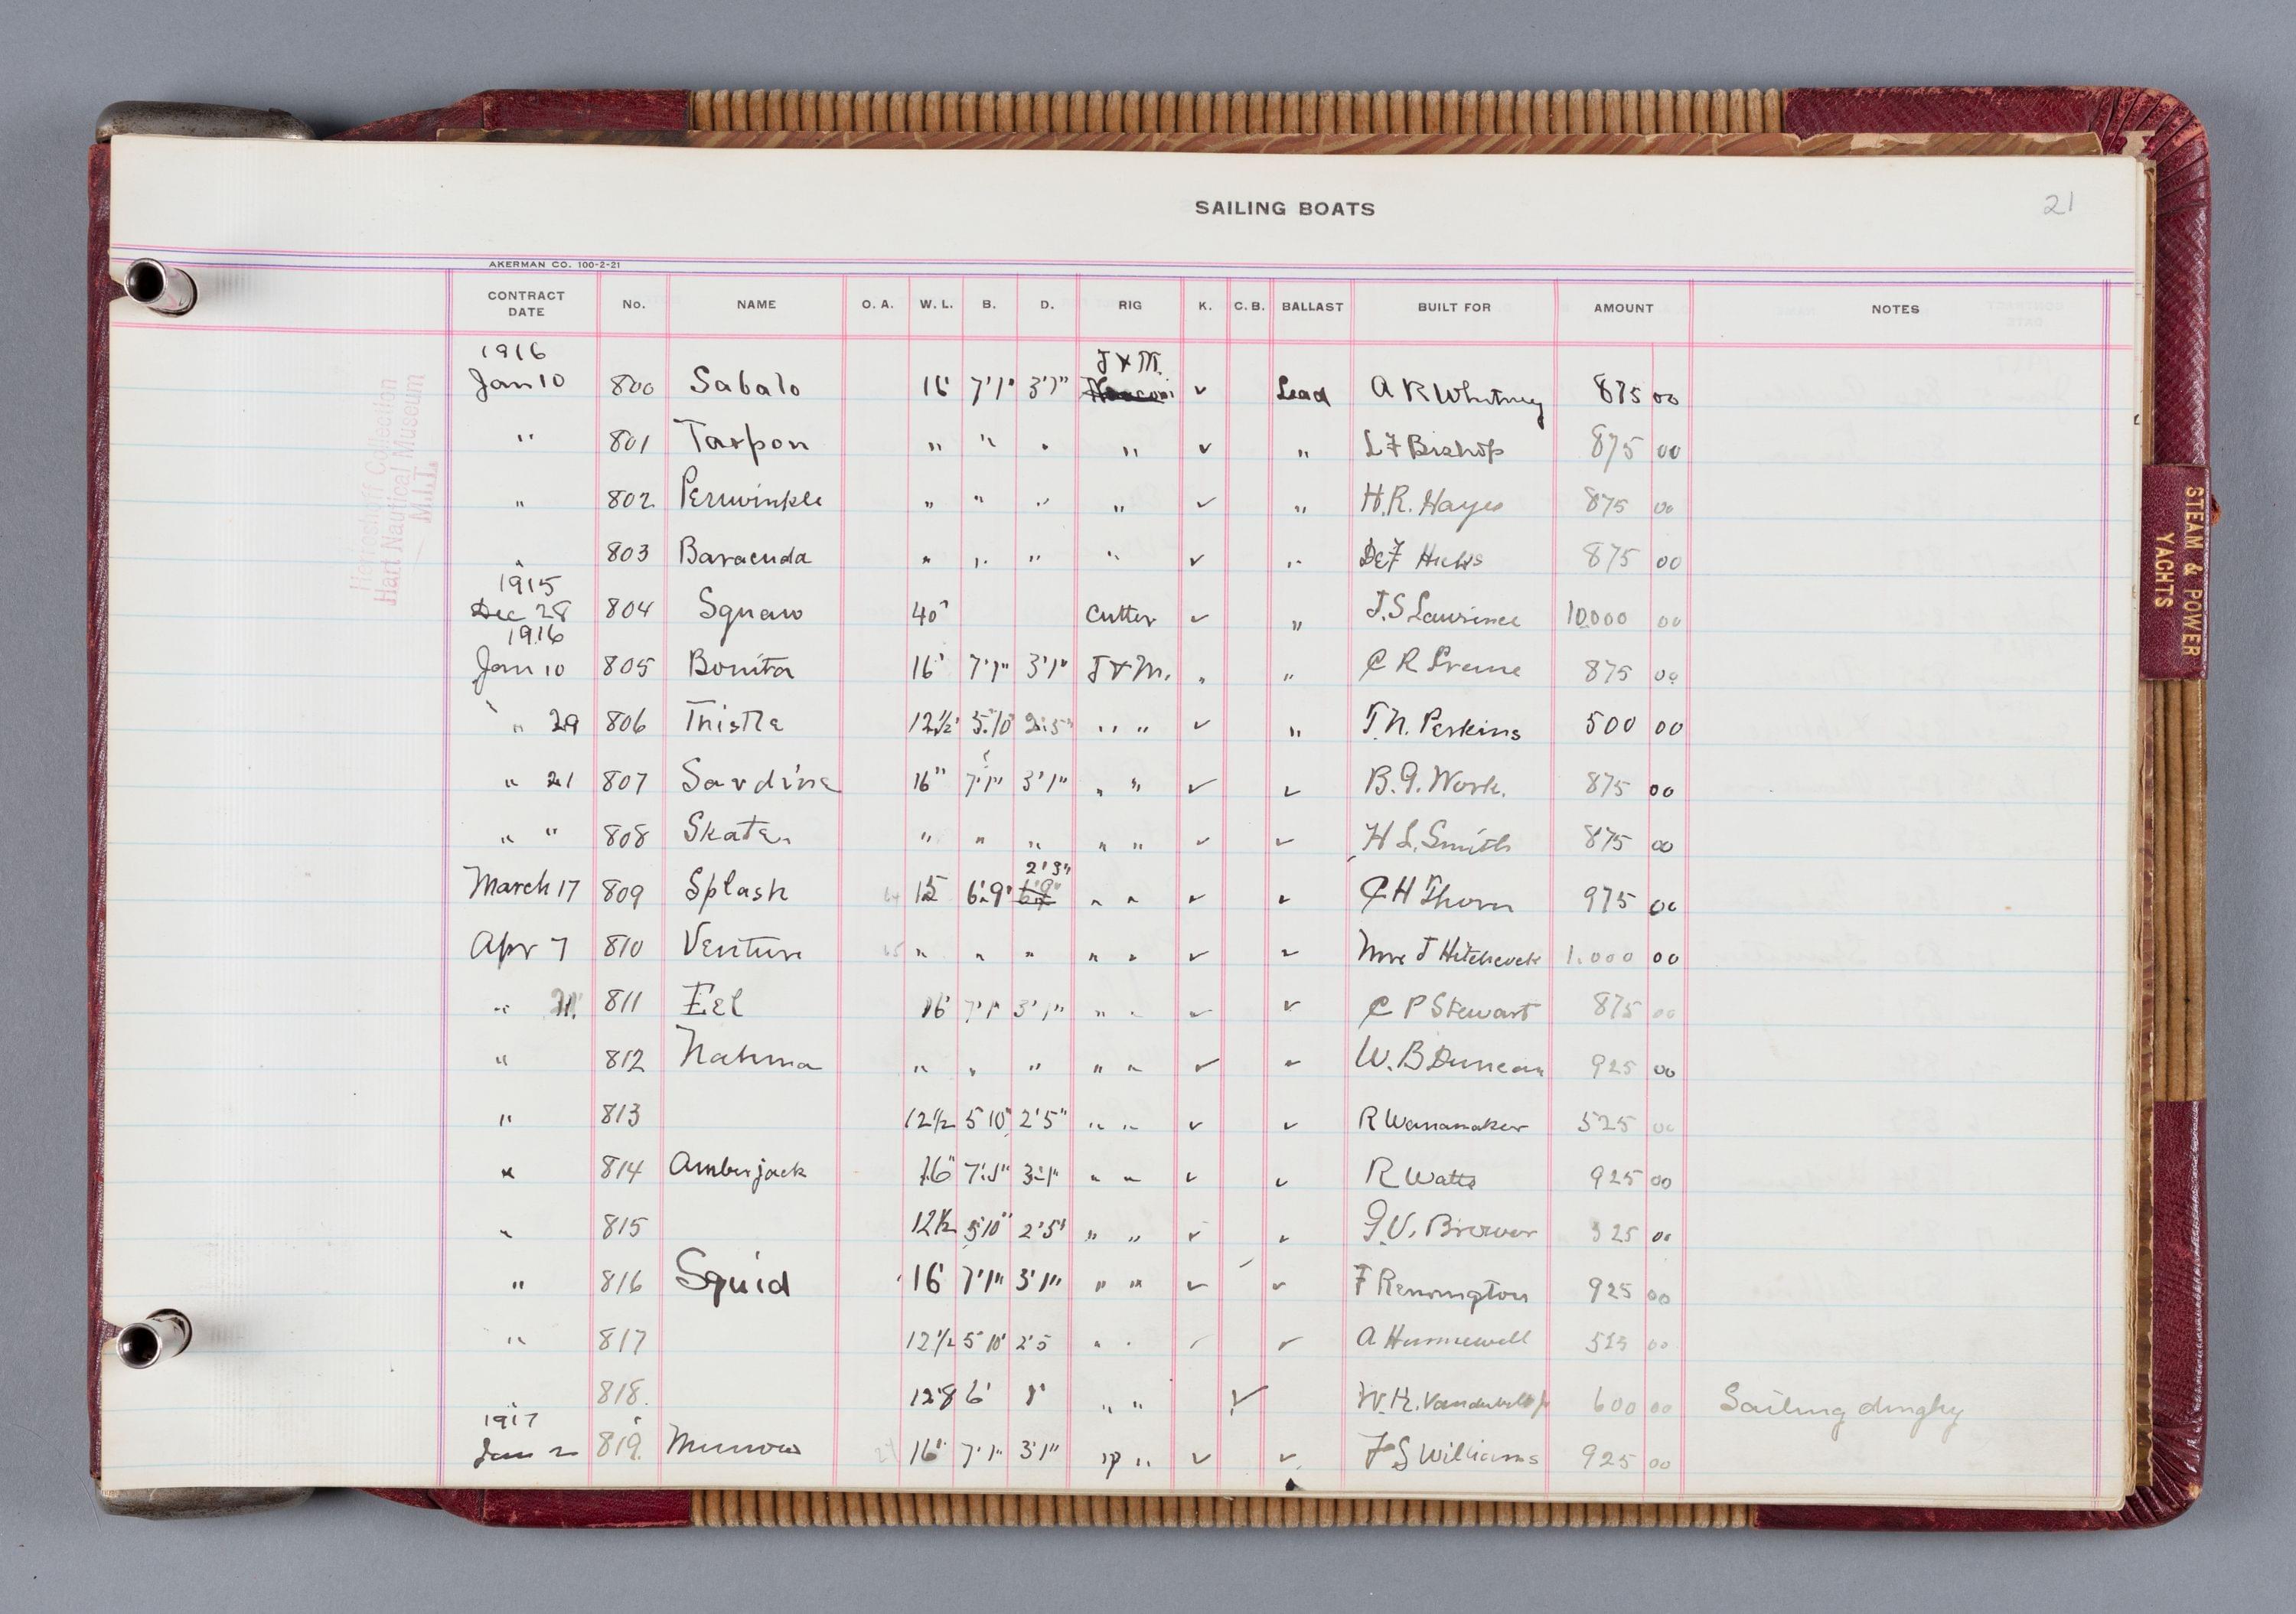 SAILING BOATS 21
AKERMAN CO. 100-2-21
CONTRACT DATE No. NAME O. A. W. L. B. D. RIG K. C. B. BALLAST BUILT FOR AMOUNT NOTES
1916 J & M.
Jan 10 800 Sabalo 16' 7'1" 3'1" ✓ Lead A R Whitney 875 00
" 801 Tarpon " " " " ✓ " L F Bishop 875 00
" 802 Periwinkle " " " " ✓ " H. R. Hayes 875 00
" 803 Baracuda " " " " ✓ " DeF Hicks 875 00
1915
Dec 28 804 Squaw 40' Cutter ✓ " J. S Lawrence 10000 00
1916
Jan 10 805 Bonita 16' 7'1" 3'1" J & M. " " C R 875 00
" 29 806 Thistle 12½' 5'10" 2'5" " " ✓ " T. N. Perkins 500 00
" 21 807 Sardine 16" 7'1" 3'1" " " ✓ ✓ B. G. Work. 875 00
" " 808 Skate. " " " " " ✓ ✓ H L. Smith 875 00
2'3"
March 17 809 Splash 15 6'9" " " ✓ ✓ C H Thorn 975 00
Apr 7 810 Venture " " " " " ✓ ✓ Mrs T Hitchcock 1.000 00
" 811 Eel 16' 7'1" 3'1" " " ✓ ✓ C P Stewart 875 00
" 812 Nahma " " " " " ✓ ✓ W. B Duncan 925 00
" 813 12½ 5 10" 2'5" " " ✓ ✓ R Wanamaker 525 00
" 814 Amberjack 16" 7'1" 3'1" " " ✓ ✓ R Watts 925 00
" 815 12½ 5'10" 2'5" " " ✓ ✓ G. V. Brower 525 00
" 816 Squid 16' 7'1" 3'1" " " ✓ ✓ F Remington 925 00
" 817 12½ 5'10' 2'5 " " ✓ ✓ A Hunnewell 525 00
" 818. 12'8 6' " " ✓ W. K. Vanderbilt Jr 600 00 Sailing dinghy
1917
Jan 2 819. Minnow 16' 7'1" 3'1" " " ✓ ✓ F S Williams 925 00
Herreshoff Collection
Hart Nautical Museum
M.I.T.
STEAM & POWER
YACHTS